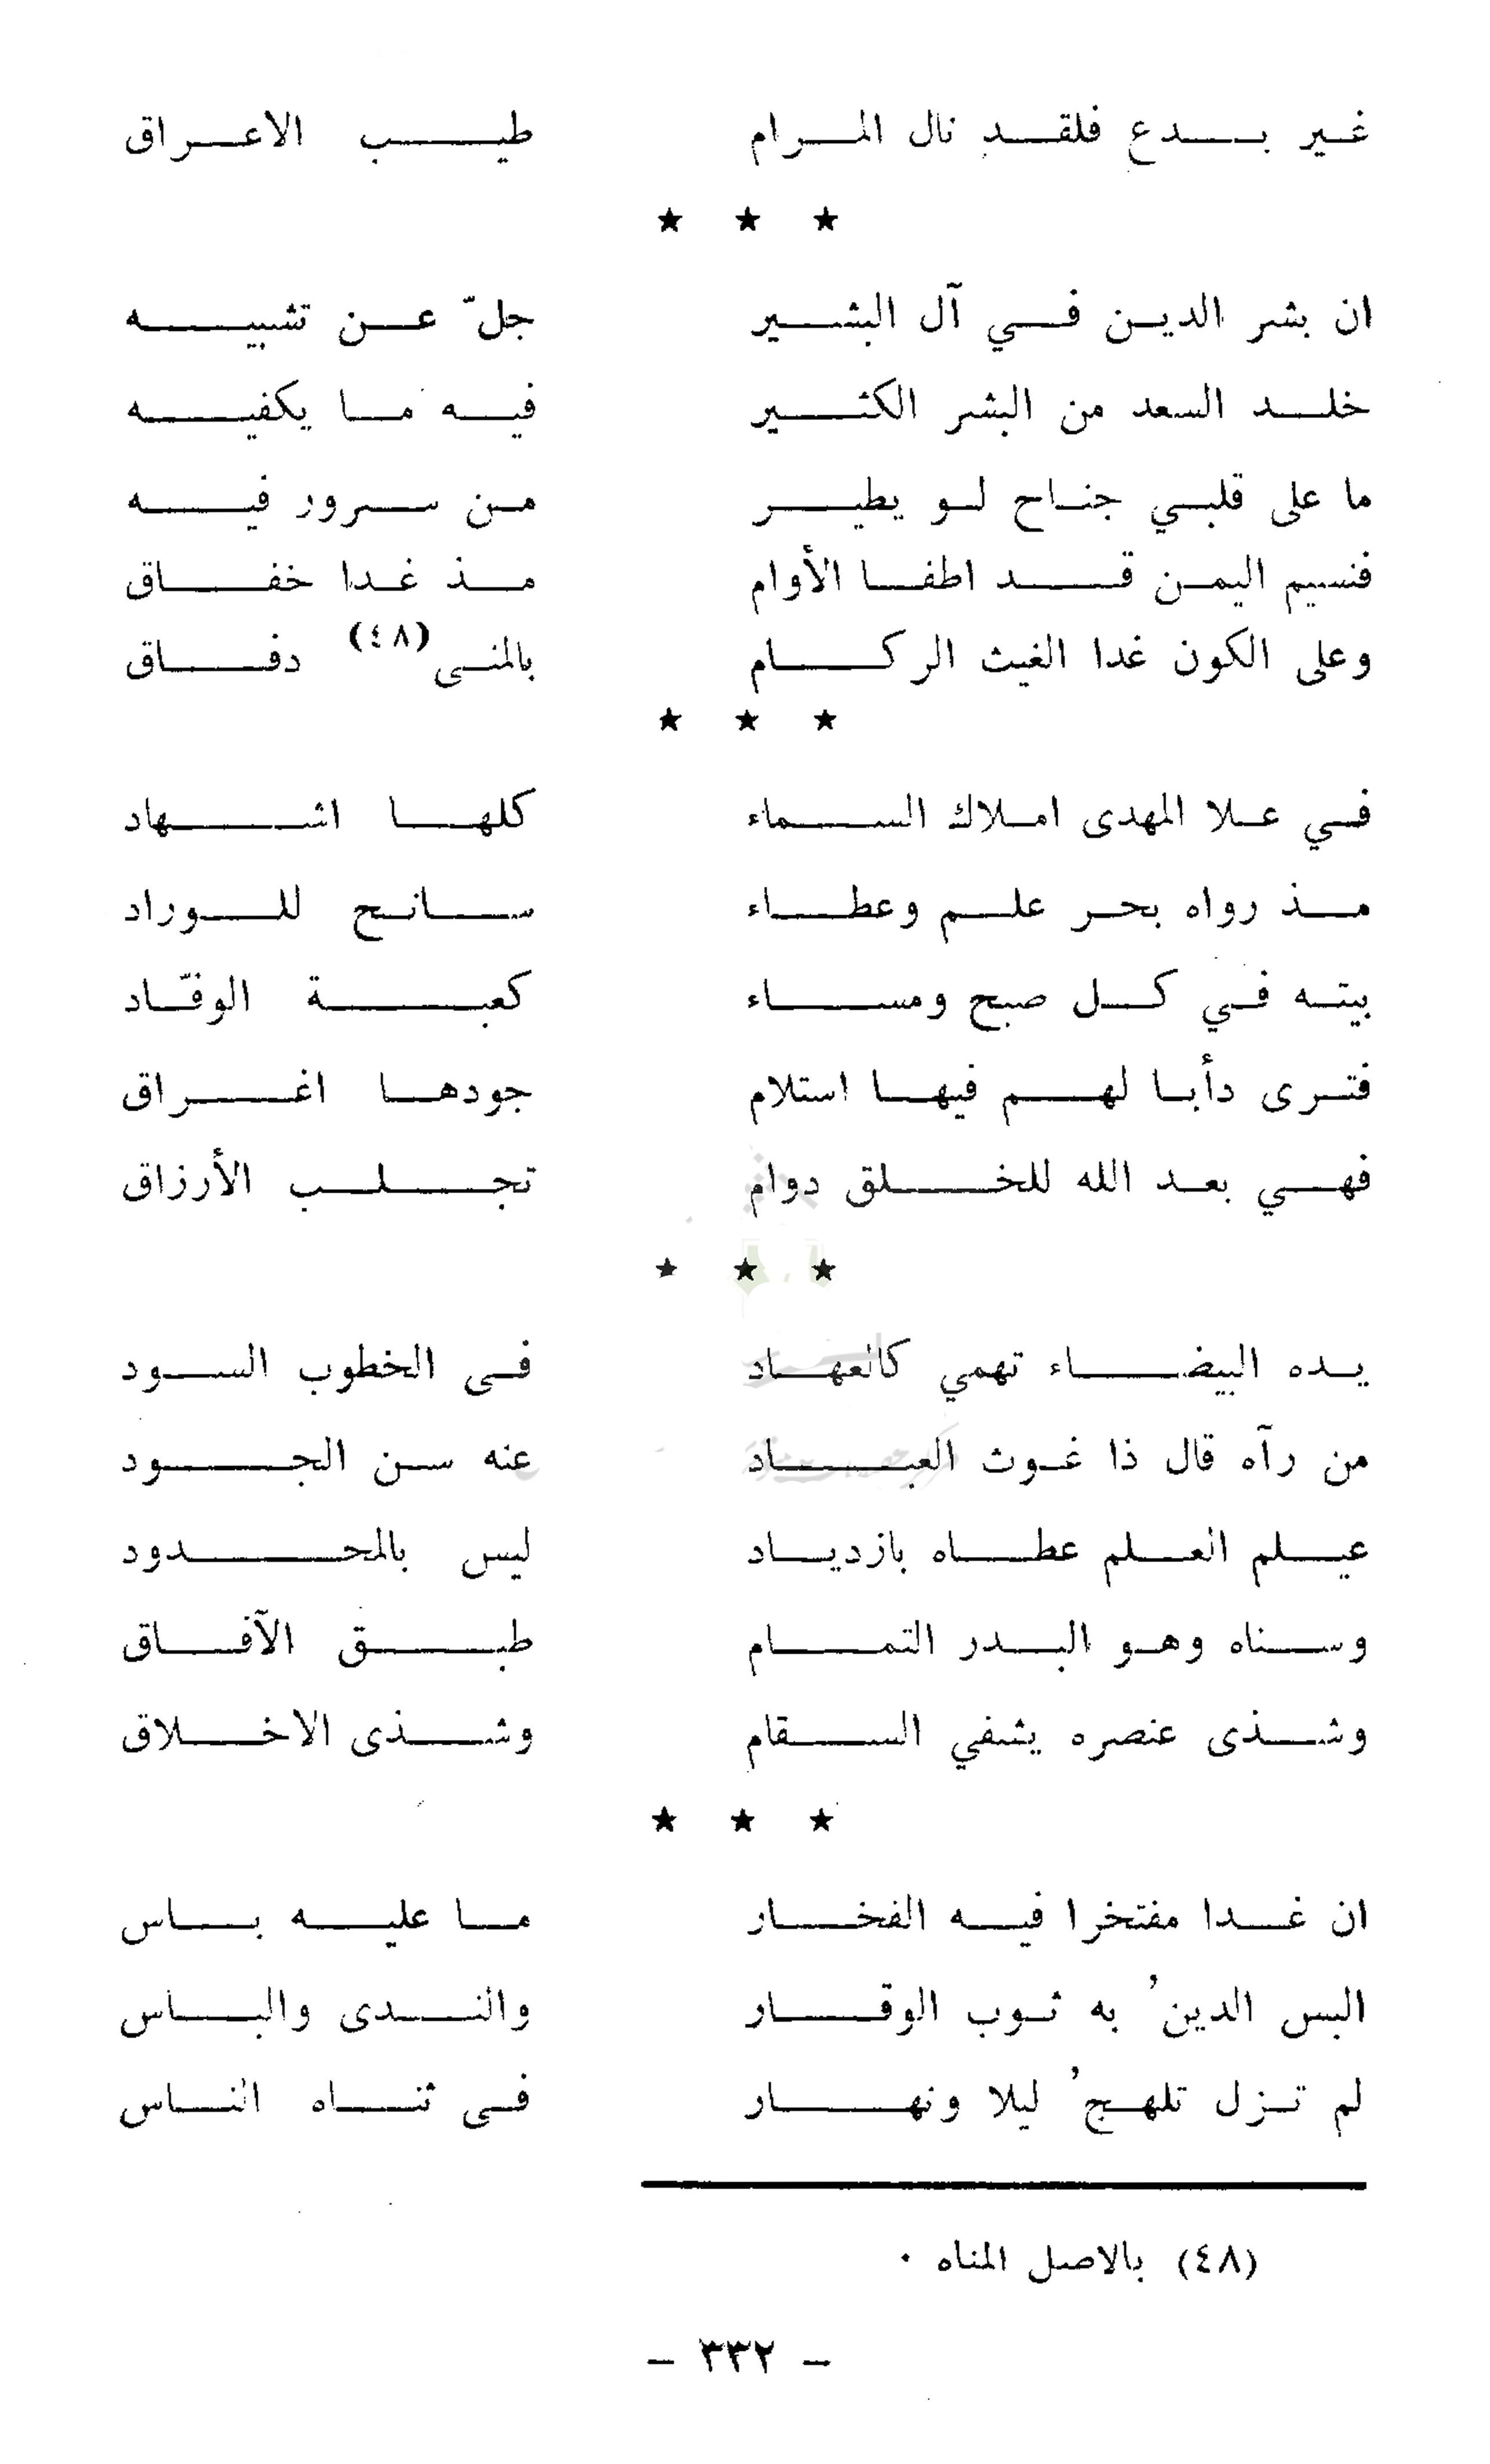 غير بدع فلقد نال المرام طيب الاعراق
★ ★ ★
ان بشر الدين في آل البشير جلّ عن تشبيه
خلد السعد من البشر الكثير فيه ما يكفيه
ما على قلبي جناح لو يطير من سرور فيه
فنسيم اليمن قد اطفا الأوام مذ غدا خفاق
وعلى الكون غدا الغيث الركام بالمنى (٤٨) دفاق
★ ★ ★
في علا المهدى املاك السماء كلها اشهاد
مذ رواه بحر علم وعطاء سانح للوراد
بيته في كل صبح ومساء كعبة الوفّاد
فترى دأبا لهم فيها استلام جودها اغراق
فهي بعد الله للخلق دوام تجلب الأرزاق
★ ★ ★
يده البيضاء تهمي كالعهاد فى الخطوب السود
من رآه قال ذا غوث العباد عنه سن الجود
عيلم العلم عطاه بازدياد ليس بالمحدود
وسناه وهو البدر التمام طبق الآفاق
وشذى عنصره يشفي السقام وشذى الاخلاق
★ ★ ★
ان غدا مفتخرا فيه الفخار ما عليه باس
البس الدينُ به ثوب الوقار والندى والباس
لم تزل تلهجُ ليلا ونهار فى ثناه الناس
(٤٨) بالاصل المناه ٠
– ٣٣٢ –